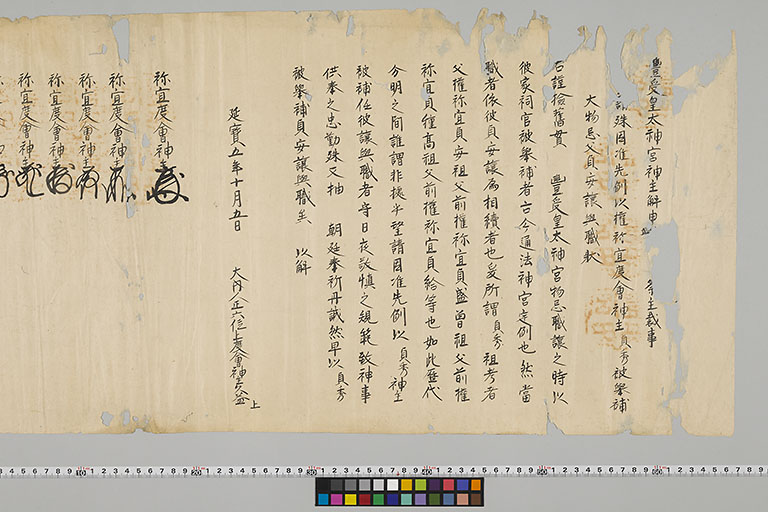 豊受皇太神宮神主解申 祭主裁事
殊因准先例以権祢宜度會神主貞秀被挙補
大物忌父貞安譲與職欤
右謹検舊貫 豊受皇太神宮物忌職譲之時以
彼家祠官被挙補者古今通法神宮定例也然當
職者依彼貞安譲為相續者也爰所謂貞秀祖考者
父権祢宜貞安祖父前権祢宜貞盛曽祖父前権
祢宜貞種高祖父前権祢宜貞給等也如此歴代
分明之間誰謂非據乎望請因准先例以貞秀神主
被補任彼譲與職者守日夜敬慎之規範致神事
供奉之忠勤殊又抽 朝廷奉祈丹誠然早以貞秀
被挙補貞安譲與職矣 以解
延寶五年十月五日 大内正六位上度會神主 上
祢宜度會神主
祢宜度會神主
祢宜度會神主
祢宜度會神主
祢宜度會神主